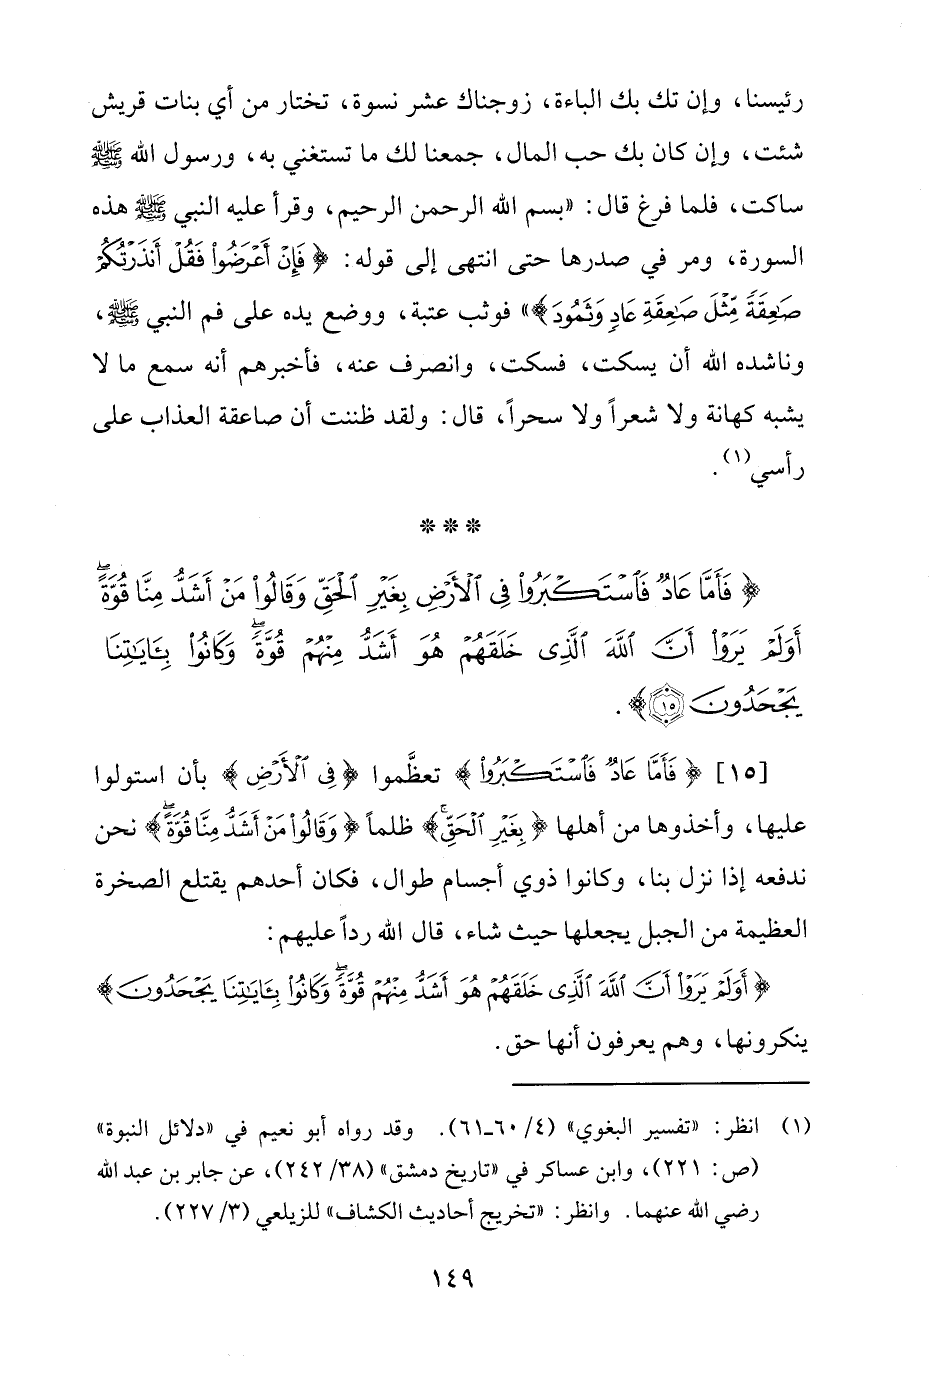 رئيسنا، وإن تك بك الباءة، زوجناك عشر نسوة، تختار من أي بنات قريش
شئت، وإن كان بك حب المال، جمعنا لك ما تستغني به، ورسول الله ﷺ
ساكت، فلما فرغ قال: «بسم الله الرحمن الرحيم، وقرأ عليه النبي ﷺ هذه
السورة، ومر في صدرها حتى انتهى إلى قوله: ﴿فَإِنْ أَعْرَضُوا۟ فَقُلْ أَنذَرْتُكُمْ
صَٰعِقَةً مِّثْلَ صَٰعِقَةِ عَادٍ وَثَمُودَ﴾» فوثب عتبة، ووضع يده على فم النبي ﷺ،
وناشده الله أن يسكت، فسكت، وانصرف عنه، فأخبرهم أنه سمع ما لا
يشبه كهانة ولا شعراً ولا سحراً، قال: ولقد ظننت أن صاعقة العذاب على
رأسي(١).
***
﴿فَأَمَّا عَادٌ فَٱسْتَكْبَرُوا۟ فِى ٱلْأَرْضِ بِغَيْرِ ٱلْحَقِّ وَقَالُوا۟ مَنْ أَشَدُّ مِنَّا قُوَّةً ۖ
أَوَلَمْ يَرَوْا۟ أَنَّ ٱللَّهَ ٱلَّذِى خَلَقَهُمْ هُوَ أَشَدُّ مِنْهُمْ قُوَّةً ۖ وَكَانُوا۟ بِـَٔايَٰتِنَا
يَجْحَدُونَ ١٥﴾.
[١٥] ﴿فَأَمَّا عَادٌ فَٱسْتَكْبَرُوا۟﴾ تعظَّموا ﴿فِى ٱلْأَرْضِ﴾ بأن استولوا
عليها، وأخذوها من أهلها ﴿بِغَيْرِ ٱلْحَقِّ﴾ ظلماً ﴿وَقَالُوا۟ مَنْ أَشَدُّ مِنَّا قُوَّةً ۖ﴾ نحن
ندفعه إذا نزل بنا، وكانوا ذوي أجسام طوال، فكان أحدهم يقتلع الصخرة
العظيمة من الجبل يجعلها حيث شاء، قال الله رداً عليهم:
﴿أَوَلَمْ يَرَوْا۟ أَنَّ ٱللَّهَ ٱلَّذِى خَلَقَهُمْ هُوَ أَشَدُّ مِنْهُمْ قُوَّةً ۖ وَكَانُوا۟ بِـَٔايَٰتِنَا يَجْحَدُونَ﴾
ينكرونها، وهم يعرفون أنها حق.
(١) انظر: «تفسير البغوي» (٤/ ٦٠ـ٦١). وقد رواه أبو نعيم في «دلائل النبوة»
(ص: ٢٢١)، وابن عساكر في «تاريخ دمشق» (٣٨/ ٢٤٢)، عن جابر بن عبد الله
رضي الله عنهما. وانظر: «تخريج أحاديث الكشاف» للزيلعي (٣/ ٢٢٧).
١٤٩